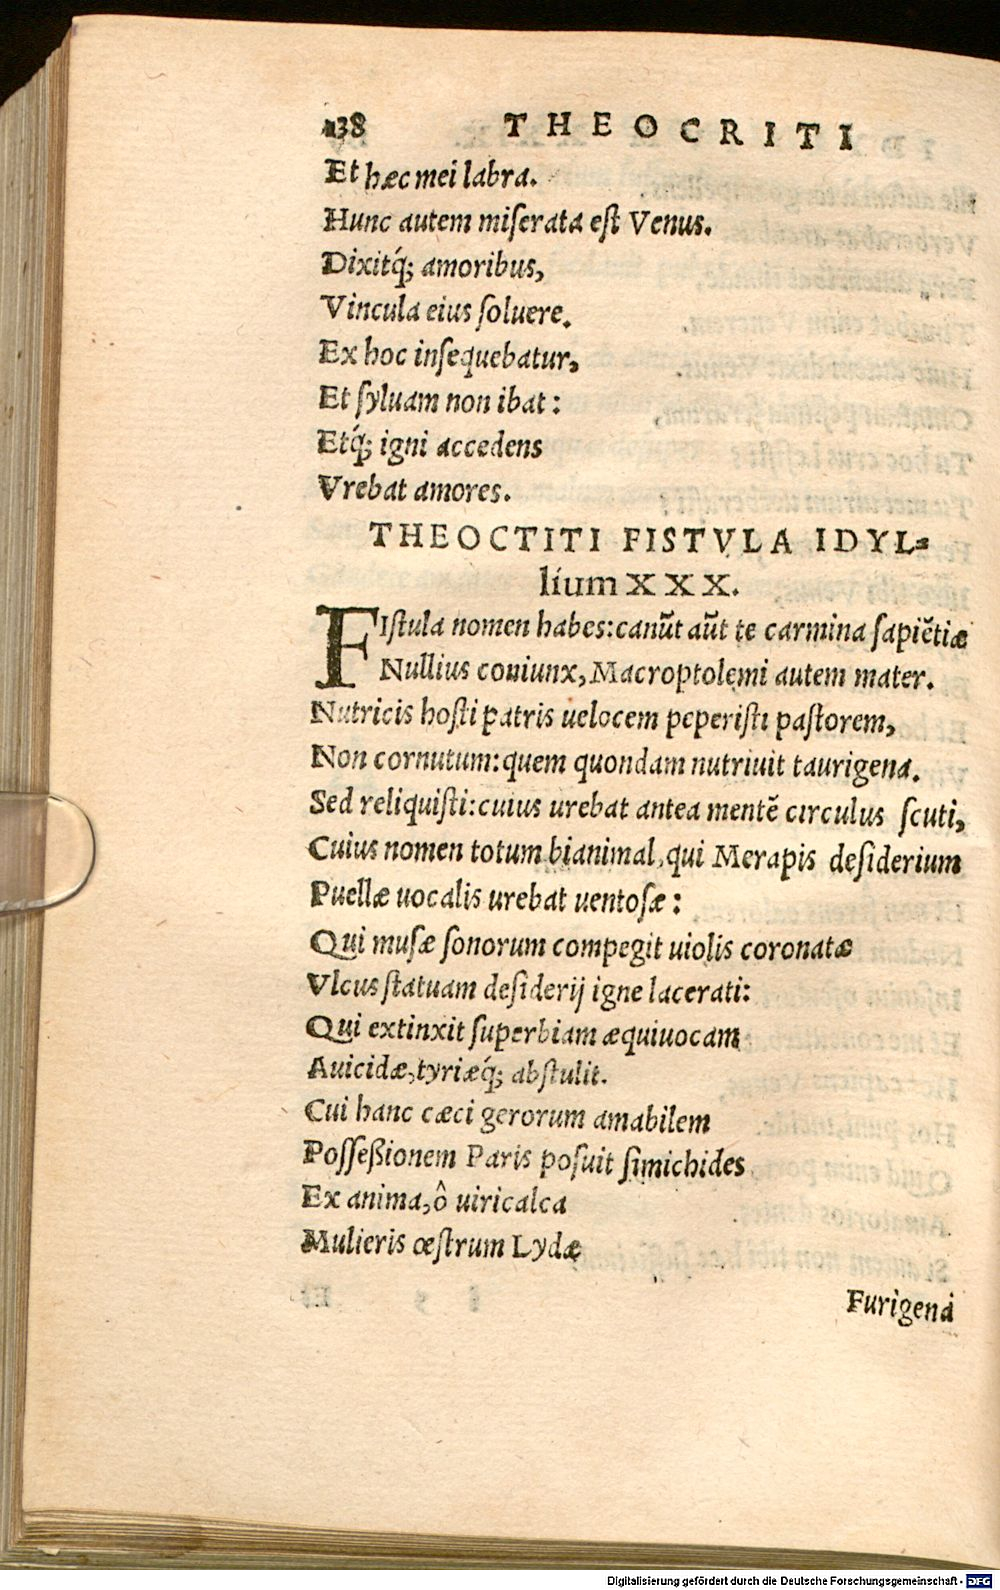 138 THEOCRITI
Et hæc mei labra.
Hunc autem miſerata eſt Venus.
Dixitq́; amoribus,
Vincula eius ſoluere.
Ex hoc inſequebatur,
Et ſyluam non ibat:
Etq́; igni accedens
Vrebat amores.
THEOCTITI FISTVLA IDYL⸗
lium XXX.
FIſtula nomen habes:canũt aũt te carmina ſapiẽtiæ
Nullius coniunx, Macroptolemi autem mater.
Nutricis hoſti patris uelocem peperiſti paſtorem,
Non cornutum:quem quondam nutriuit taurigena.
Sed reliquiſti:cuius urebat antea mentẽ circulus ſcuti,
Cuius nomen totum bianimal, qui Merapis deſiderium
Puellæ uocalis urebat uentoſæ:
Qui muſæ ſonorum compegit uiolis coronatæ
Vlcus ſtatuam deſiderij igne lacerati:
Qui extinxit ſuperbiam æquiuocam
Auicidæ,tyriæq́; abſtulit.
Cui hanc cæci gerorum amabilem
Poſſeßionem Paris poſuit ſimichides
Ex anima,ô uiricalca
Mulieris œſtrum Lydæ
Furigena
Digitalisierung gefördert durch die Deutsche Forschungsgemeinschaft - DFG